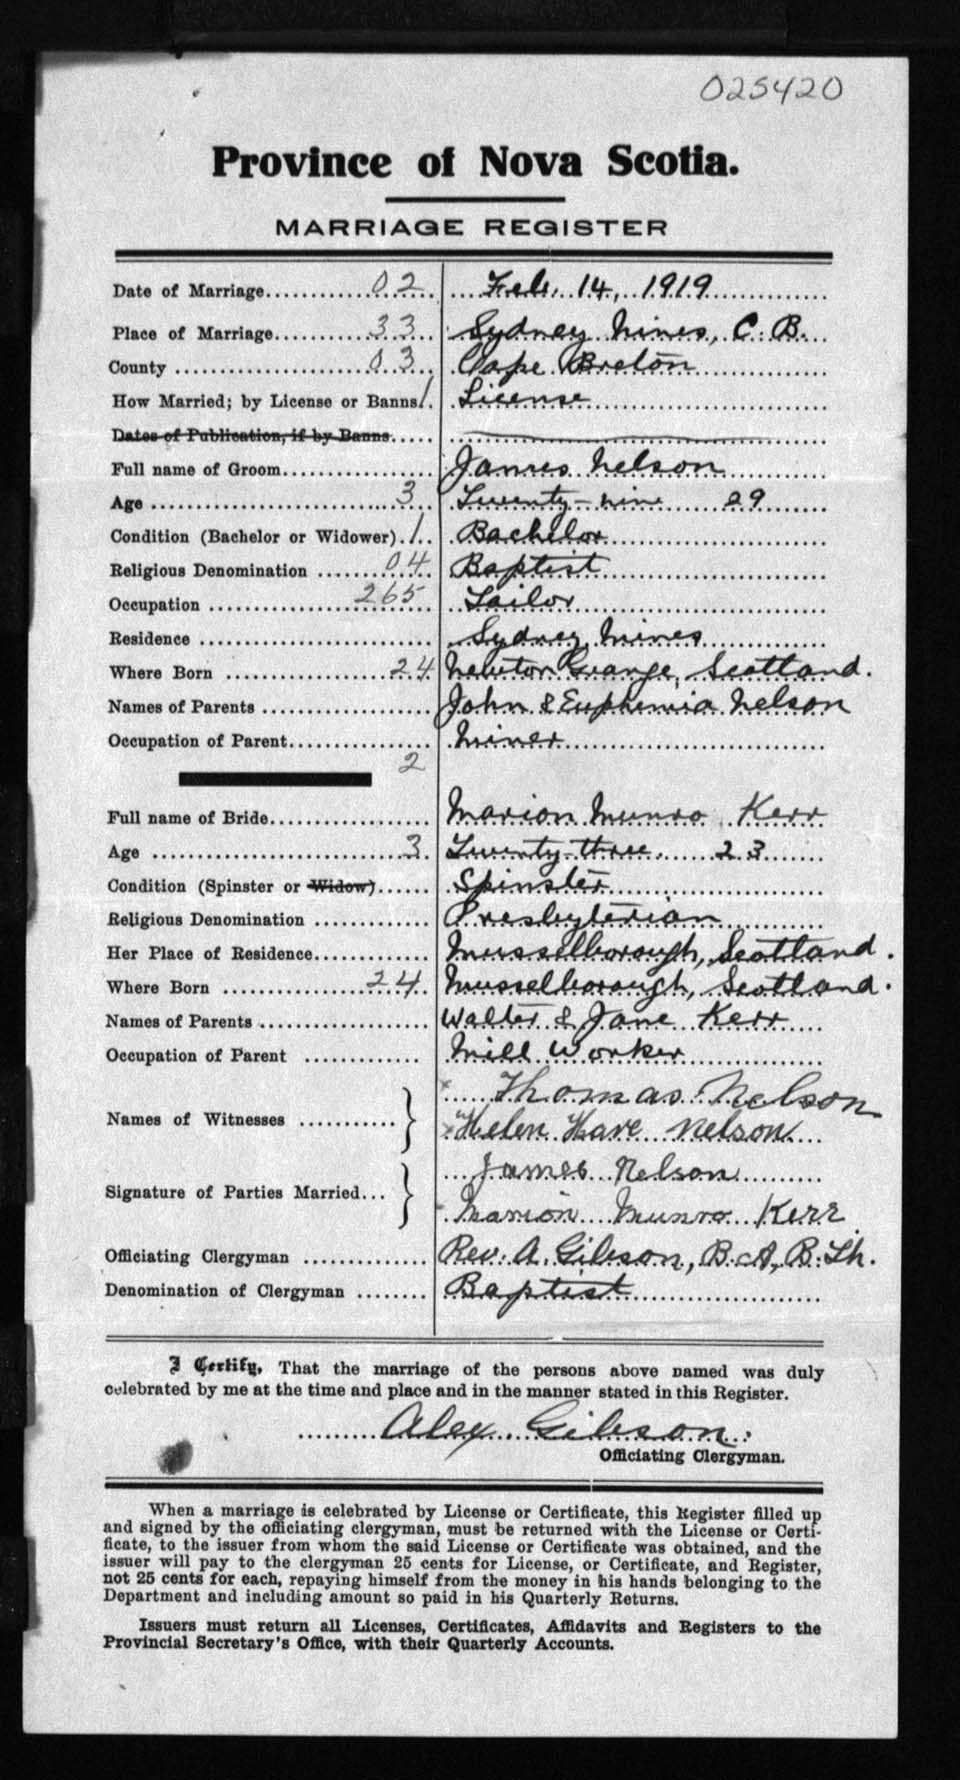 025420
Province of Nova Scotia.
MARRIAGE REGISTER
Date of Marriage.............02.... ....Feb. 14, 1919..............
Place of Marriage.............33.. .Sydney Mines, C. B....
County ......................03... .Cape Breton..............
How Married; by License or Banns1. .License......................
Dates of Publication, if by Banns..... ......................................
Full name of Groom................. James Nelson............
Age ...........................3... .Twenty-nine 29........
Condition (Bachelor or Widower).1.. .Bachelor......................
Religious Denomination ........04.. .Baptist......................
Occupation ..................265... ..Tailor......................
Residence ............................ ..Sydney Mines............
Where Born ....................24 Newton Grange, Scotland.
Names of Parents .................... John & Euphemia Nelson
Occupation of Parent................. .Miner......................
2
Full name of Bride................... Marion Munro Kerr
Age ...........................3. .Twenty-three.......23......
Condition (Spinster or Widow)...... .Spinster......................
Religious Denomination ............ Presbyterian............
Her Place of Residence............. Musselborough, Scotland.
Where Born ................24.. Musselborough, Scotland.
Names of Parents .................. Walter & Jane Kerr....
Occupation of Parent ............ .Mill Worker..............
x.....Thomas Nelson
Names of Witnesses ...........}
x Helen Hare Nelson....
....James Nelson..........
Signature of Parties Married...}
.Marion....Munro...Kerr
Officiating Clergyman ............ Rev. A. Gibson, B.A., B.Th.
Denomination of Clergyman ........ .Baptist......................
I Certify, That the marriage of the persons above named was duly
celebrated by me at the time and place and in the manner stated in this Register.
.........Alex Gibson....
Officiating Clergyman.
When a marriage is celebrated by License or Certificate, this Register filled up
and signed by the officiating clergyman, must be returned with the License or Certi-
ficate, to the issuer from whom the said License or Certificate was obtained, and the
issuer will pay to the clergyman 25 cents for License, or Certificate, and Register,
not 25 cents for each, repaying himself from the money in his hands belonging to the
Department and including amount so paid in his Quarterly Returns.
Issuers must return all Licenses, Certificates, Affidavits and Registers to the
Provincial Secretary's Office, with their Quarterly Accounts.